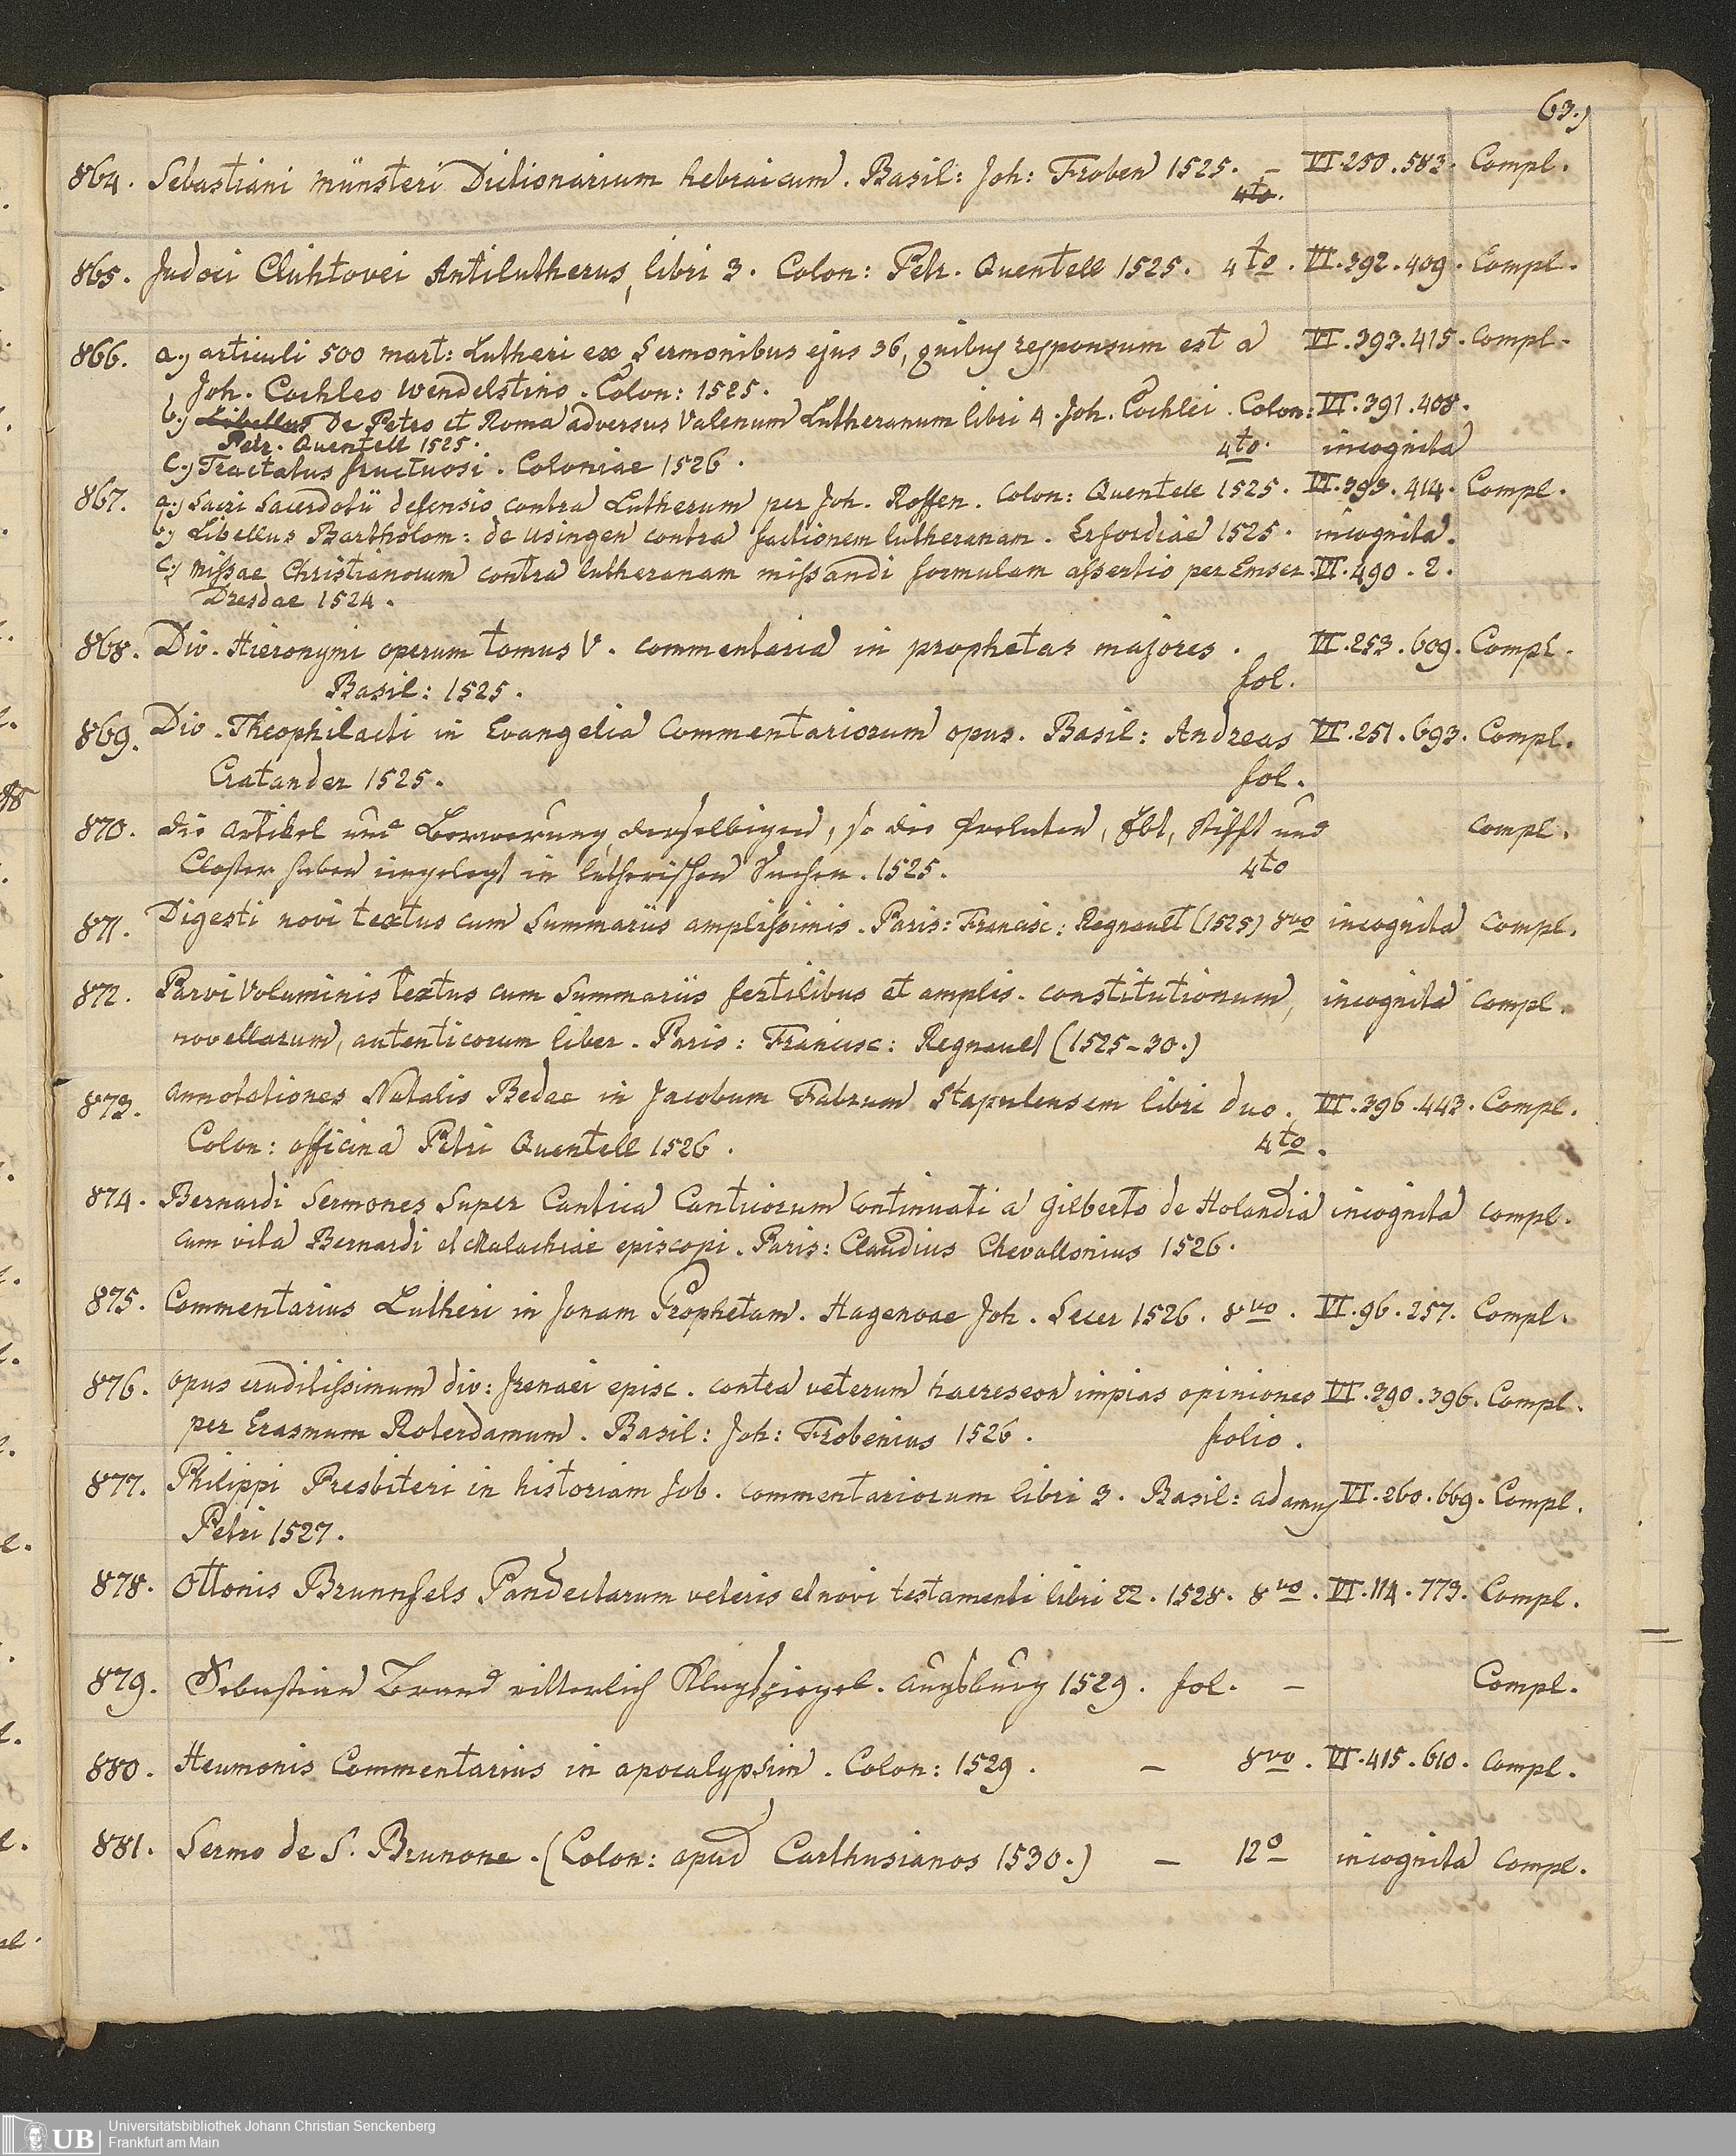 63.)
864. Sebastiani münsteri Dictionarium hebraicum. Basil: Joh: Froben 1525. – VI.250.583. Compl.
4to.
865. Judoci Clichtovei Antilutherus, libri 3. Colon: Petr. Quentell 1525. 4to. VI.392.409. Compl.
866. a.) articuli 500 mart: Lutheri ex Sermonibus ejus 36, quibus responsum est a VI.393.415. Compl.
Joh. Cochleo Wendelstino. Colon: 1525.
b.) Libellus De Petro et Roma adversus Valenum Lutheranum libri 4. Joh. Cochlei. Colon: VI.391.408.
Petr. Quentell 1525. 4to. incognita
c.) Tractatus fructuosi. Coloniae 1526.
867. a.) Sacri Sacerdotii defensio contra Lutherum per Joh. Roffen. Colon: Quentell 1525. VI.393.414. Compl.
b.) Libellus Bartholom: de Usingen contra factionem lutheranam. Erfordiae 1525. incognita.
c.) Missae Christianorum contra lutheranam missandi formulam assertio per Emser. VI.490.2.
Dresdae 1524.
868. Div. Hieronymi operum tomus V. commentaria in prophetas majores. VI.253.609. Compl.
Basil: 1525. fol.
869. Div. Theophilacti in Evangelia Commentariorum opus. Basil: Andreas VI.251.693. Compl.
Cratander 1525. fol.
870. die Artikel und derselbigen, so die Prelaten, Ebt, Stifft und compl.
Closter haben ingelegt in lutherischen Sachen. 1525. 4to
871. Digesti novi textus cum Summariis amplissimis. Paris: Francisc: Regnault (1525) 8vo incognita compl.
872. Parvi Voluminis textus cum Summariis fertilibus et amplis. constitutionum, incognita compl.
novellarum, autenticorum liber. Paris: Francisc: Regnault (1525–30.)
873. annotationes Natalis Bedae in Jacobum Fabrum Stapulensem libri duo. VI.396.443. Compl.
Colon: officina Petri Quentell 1526. 4to.
874. Bernardi Sermones Super Cantica Canticorum Continuati a Gilberto de Holandia incognita compl.
cum vita Bernardi et Malachiae episcopi. Paris: Claudius Chevallonius 1526.
875. Commentarius Lutheri in Jonam Prophetam. Hagenoae Joh. Secer 1526. 8vo. VI.96.257. Compl.
876. opus eruditissimum div: Irenaei episc. contra veterum haereseon impias opiniones VI.390.396. Compl.
per Erasmum Roterdamum. Basil: Joh: Frobenius 1526. folio.
877. Philippi Presbiteri in historiam Job. commentariorum libri 3. Basil: adamus VI.260.669. Compl.
Petri 1527.
878. Ottonis Brunnfels Pandectarum veteris et novi testamenti libri 22. 1528. 8vo. VI.114.773. Compl.
879. Sebastian Brand ritterlich Klagspiegel. Augsburg 1529. fol. – Compl.
880. Heumonis Commentarius in apocalypsin. Colon: 1529. – 8vo. VI.415.610. Compl.
881. Sermo de S. Brunone. (Colon: apud Carthusianos 1530.) – 12o incognita compl.
UB Universitätsbibliothek Johann Christian Senckenberg
Frankfurt am Main